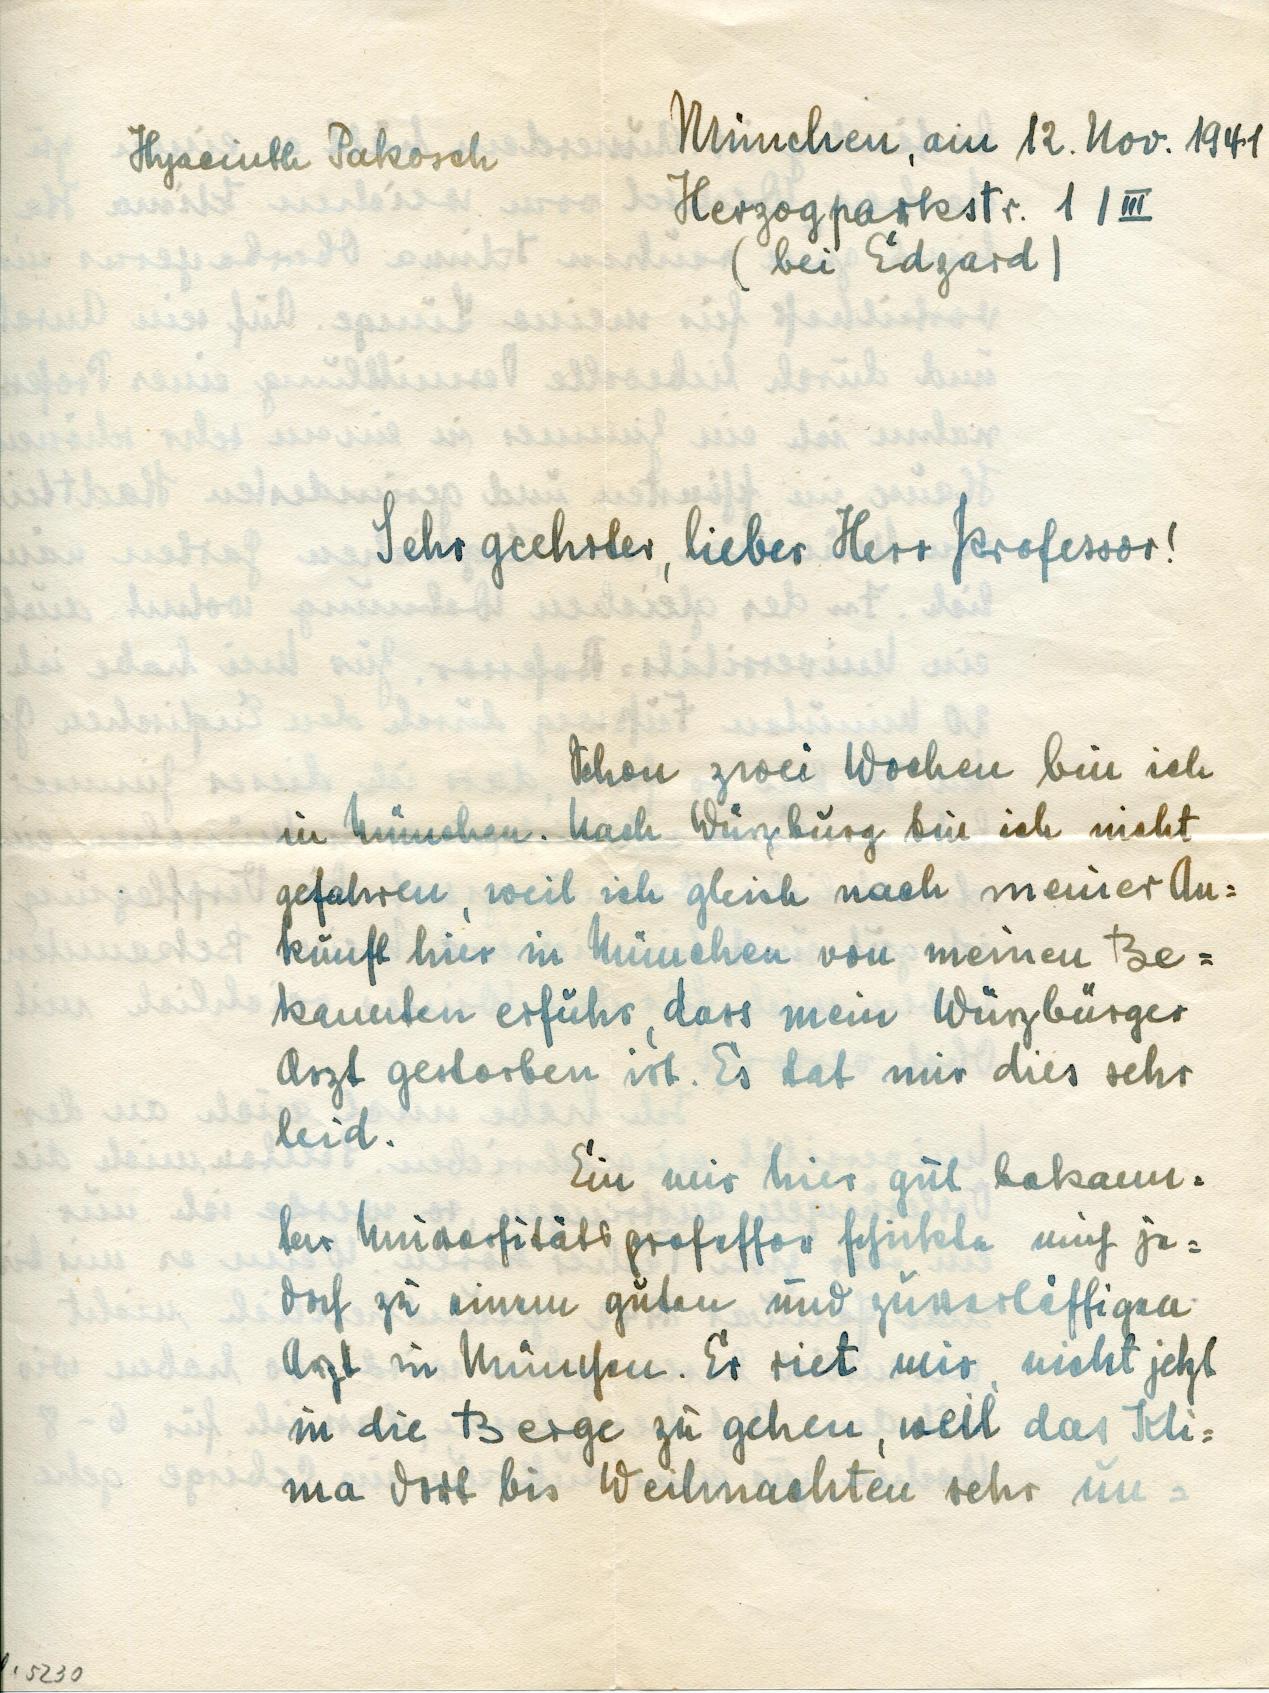 Hyacinth Pakosch
München, am 12. Nov. 1941
Herzogparkstr. 1 / III
( bei Edzard )
Sehr geehrter, lieber Herr Professor!
Schon zwei Wochen bin ich
in München. Nach Würzburg bin ich nicht
gefahren, weil ich gleich nach meiner An=
kunft hier in München von meinen Be=
kannten erfuhr, dass mein Würzburger
Arzt gestorben ist. Es tat mir dies sehr
leid.
Ein mir hier gut bekann=
ter Universitätsprofessor schickte mich je=
doch zu einem guten und zuverlässigen
Arzt in München. Er riet mir, nicht jetzt
in die Berge zu gehen, weil das Kli=
ma dort bis Weihnachten sehr un=
5230